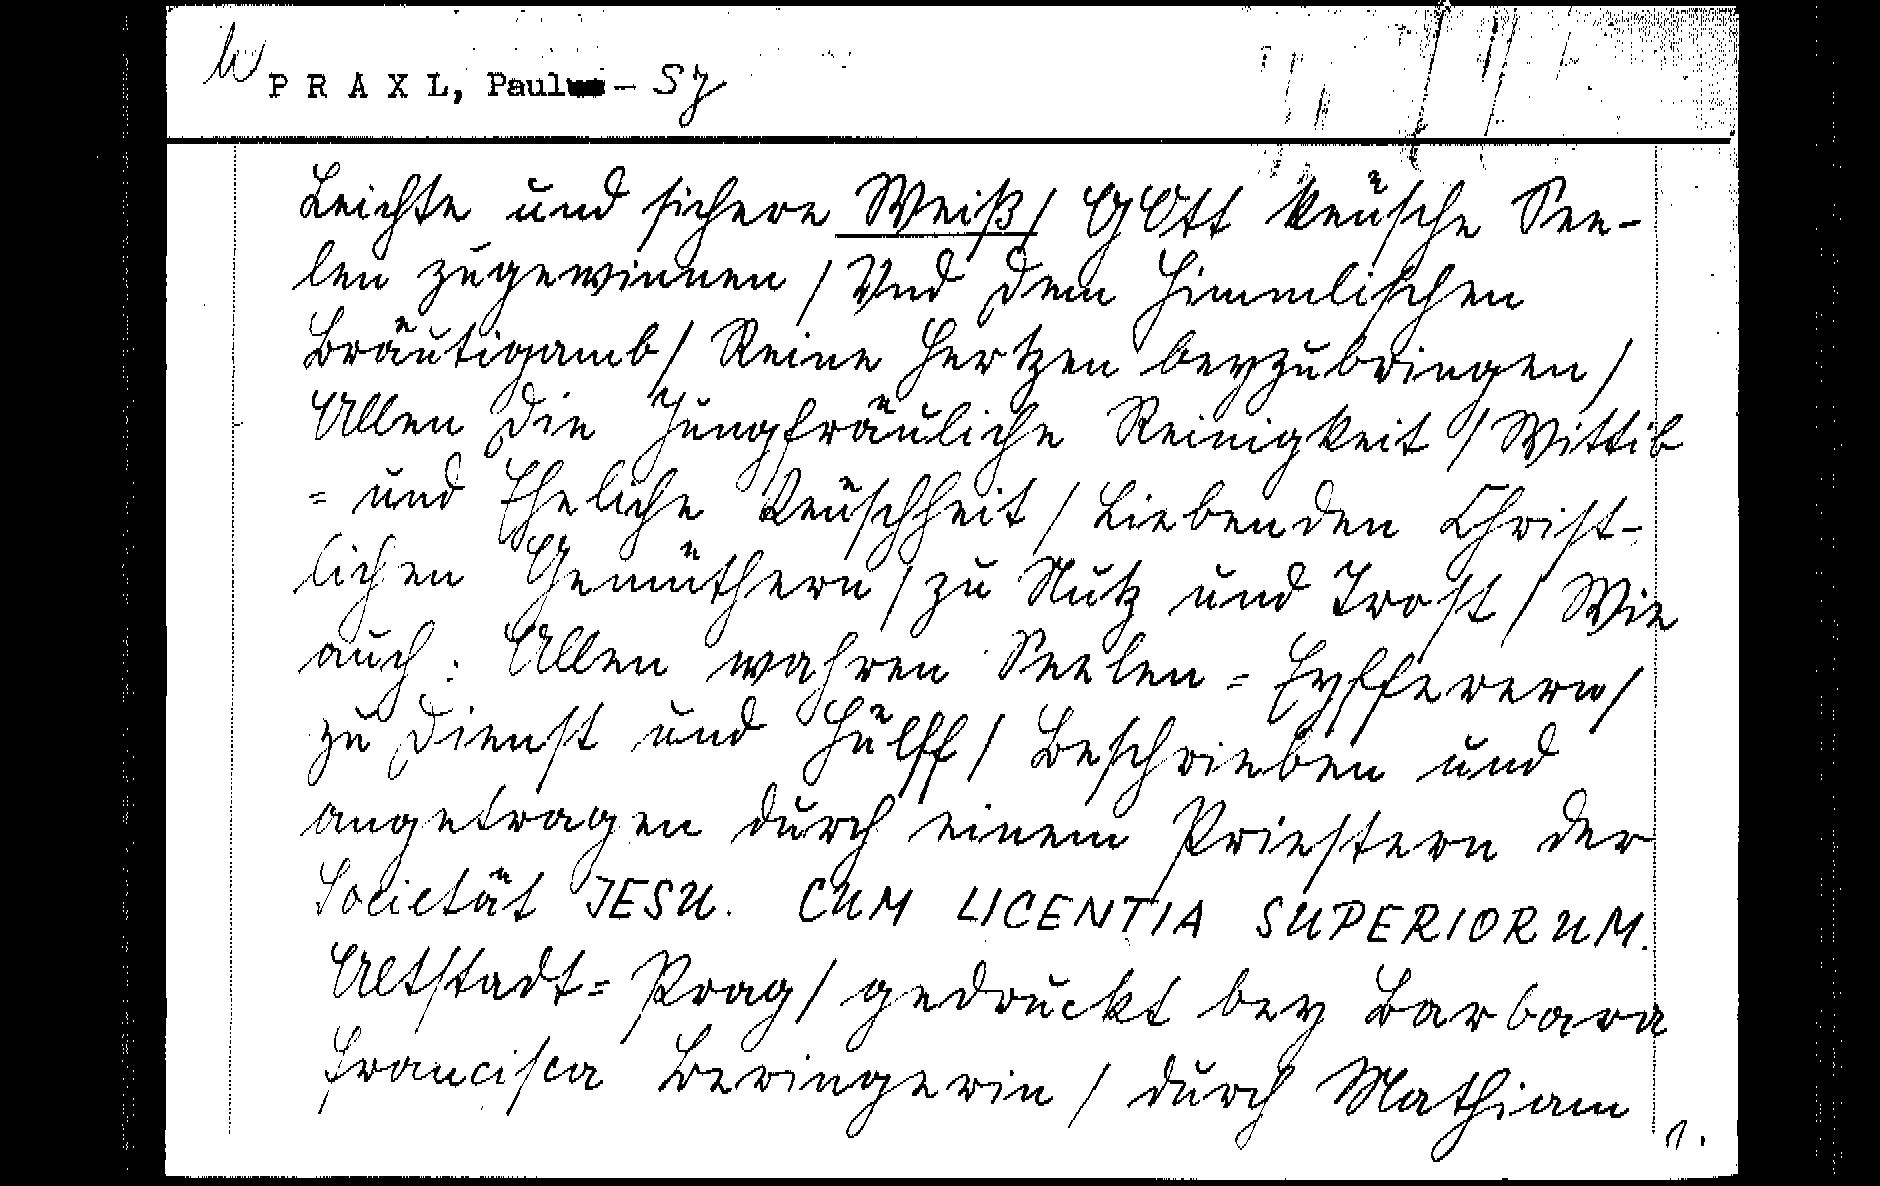 W PRAXL, Paul - SJ
Leichte und sichere Weiß/ GOtt keuͤsche See-
len zugewinnen/ Vnd dem Himmlischen
Braͤutigamb/ Reine Hertzen beyzubringen/
Allen die Jungfraͤuliche Reinigkeit/ Wittib
= und Eheliche Keuͤschheit/ Liebenden Christ-
lichen Gemuͤthern/ zu Nutz und Trost/ Wie
auch: Allen wahren Seelen=Eyfferern/
zu Dienst und Huͤlff/ Beschrieben und
angetragen durch einem Priestern der
Societaͤt JESU. CUM LICENTIA SUPERIORUM.
Altstadt=Prag/ gedruckt bey Barbara
Francisca Beringerin/ durch Mathiam